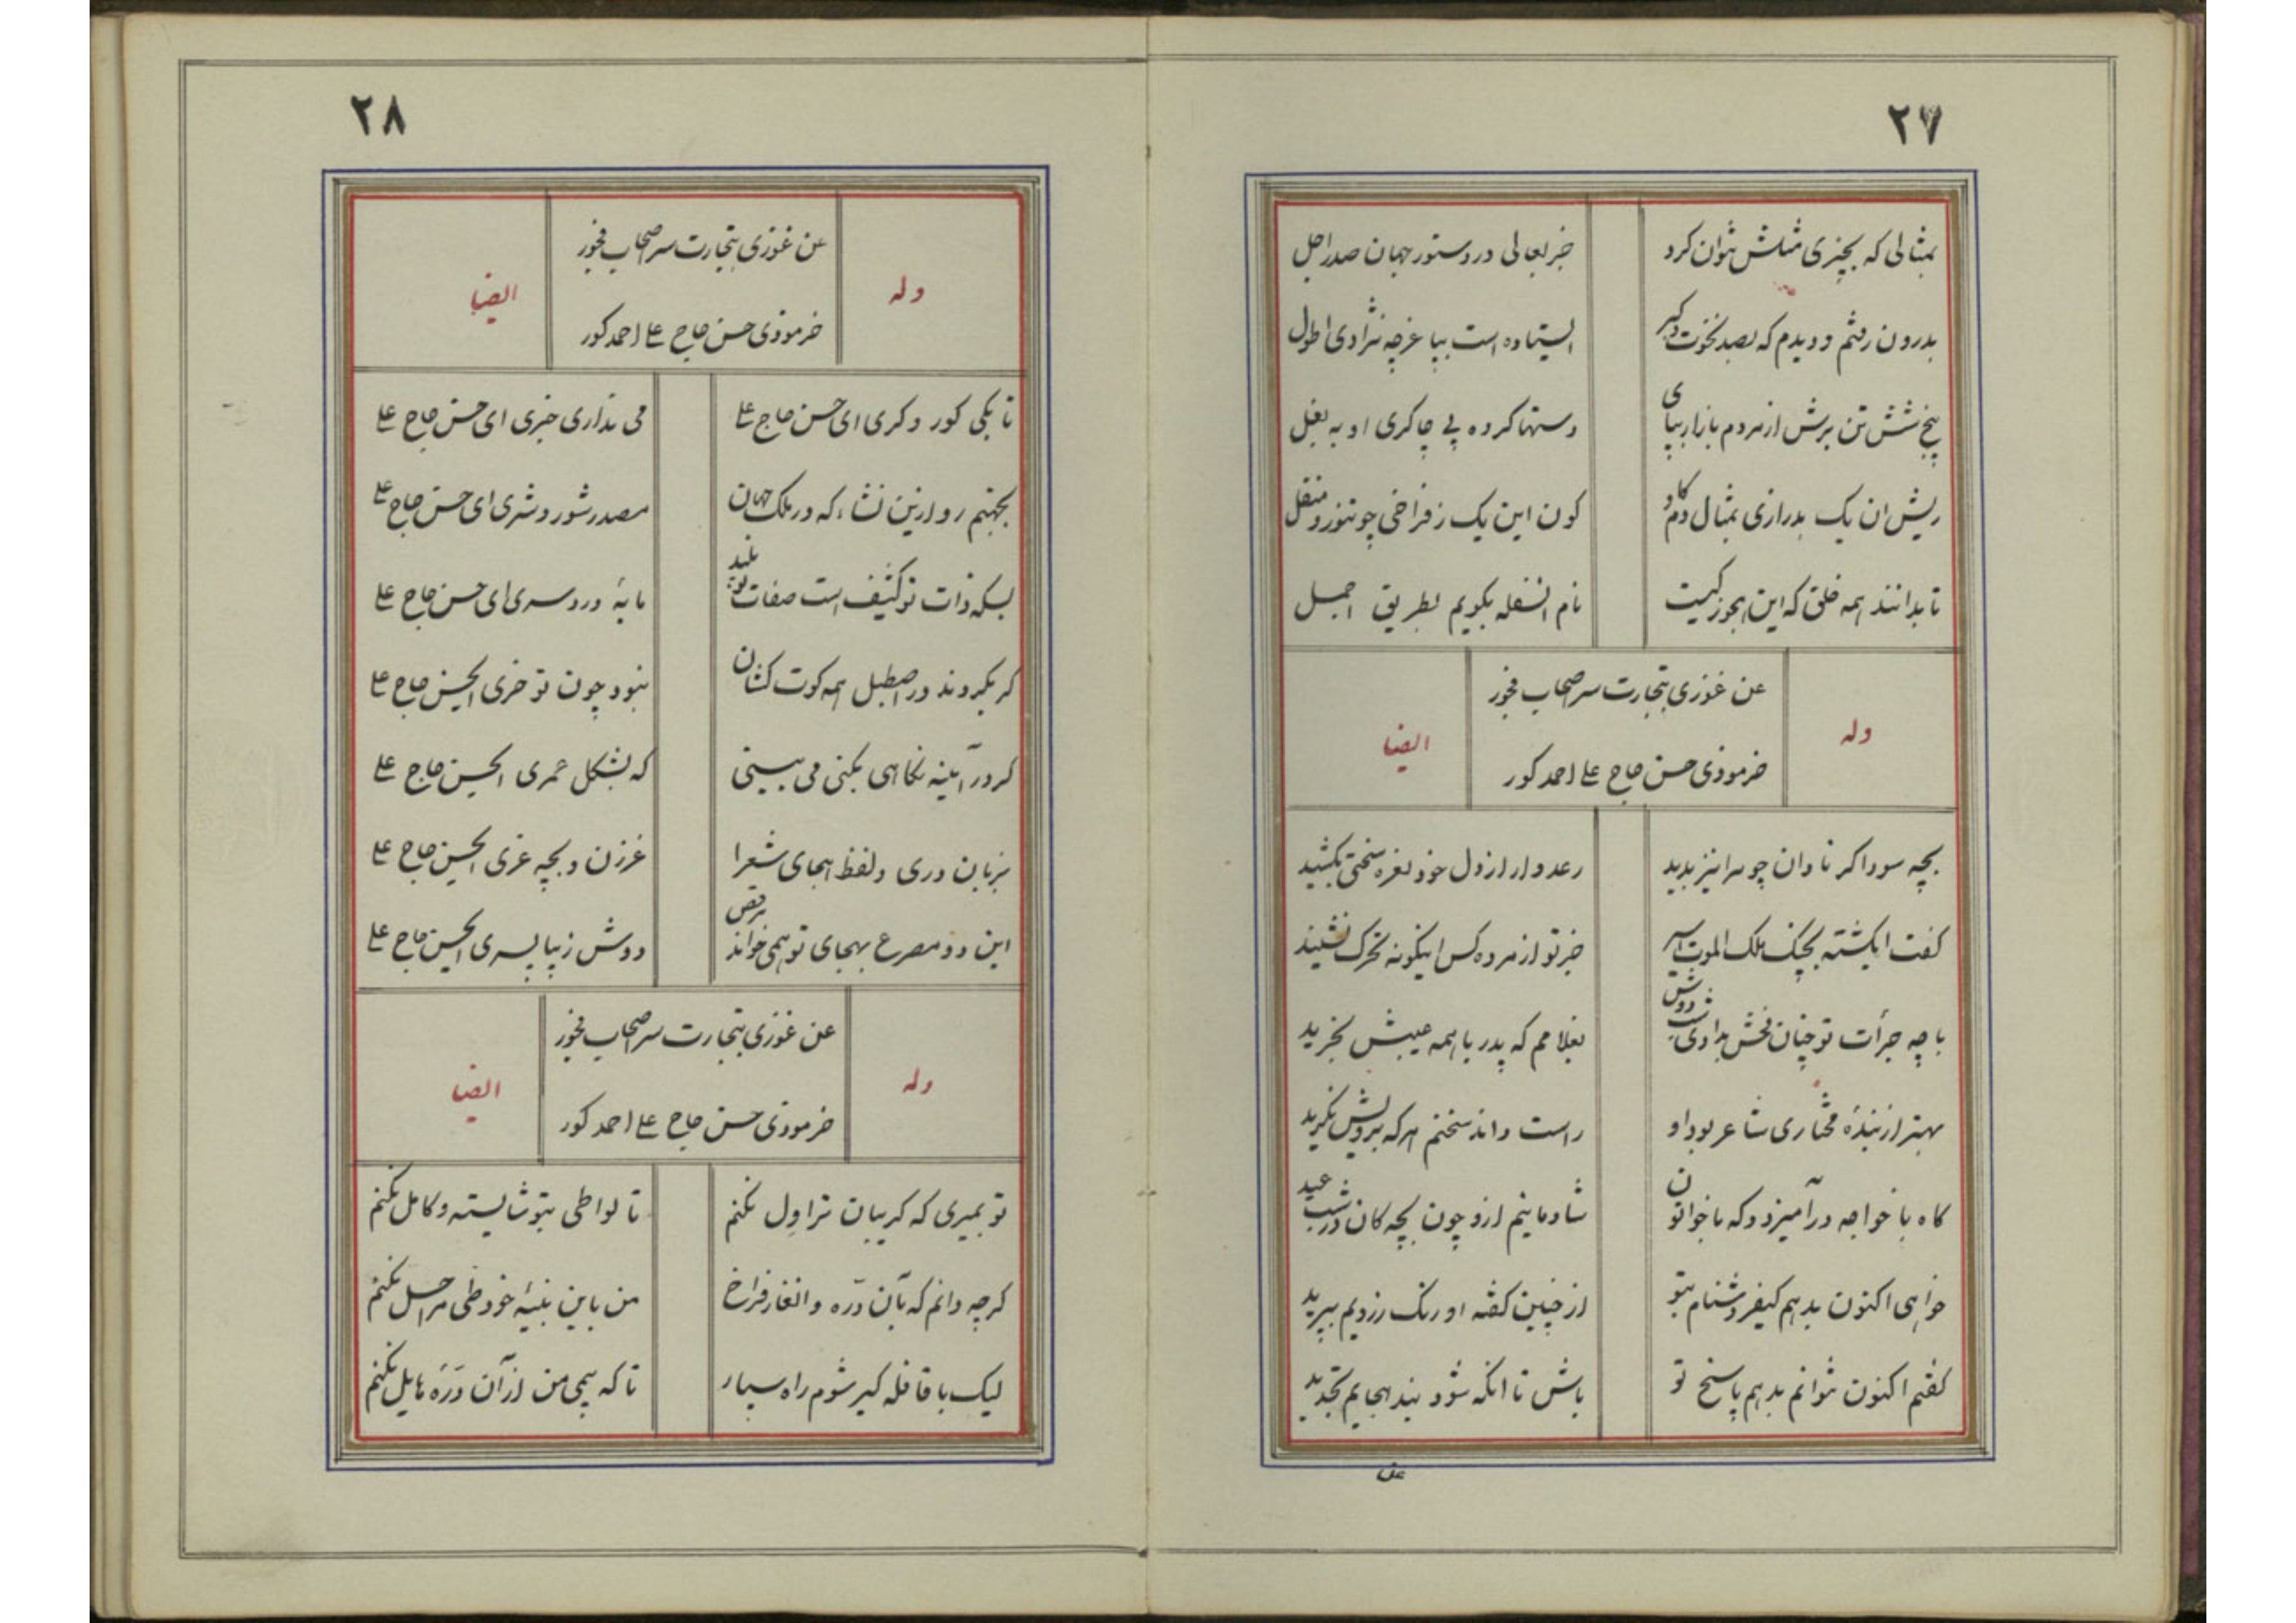 ۲۷
بمثالی که بچیزی مثلش نتوان کرد
جز بعالی در دستور جهان صدر اجل
بدرون رفتم و دیدم که بصد نخوت و کبر
ایستاده است بپا غرچه نژادی اطول
پنج شش تن برش از مردم بازار بپای
دستها کرده پی چاکری او به بغل
ریش ان یک بدرازی بمثال دم گاو
کون این یک ز فراخی چو تنور و منقل
تا بدانند همه خلق که این بجوز کیست
نام انسفله بکویم بطریق اجمل
وله
عن غوزی بتجارت سر صحاب فجور
خرموذی حسن حاج علی احمد کور
ایضا
بچه سوداکر نادان چو مرا نیز بدید
رعد وار از دل خود نعره سختی بکشید
کفت ایکشته بچنک ملک الموت اسیر
جز تو از مرده کس اینکونه تحرک نشنید
با چه جرأت تو چنان فحش بدادی شب دوش
بغلامم که پدر با همه عیبش بخرید
بهتر از بندهٔ مختاری شاعر بود او
راست داند سخنم هرکه برویش نکرید
کاه با خواجه درآمیزد و که با خواتون
شادمانیم ازو چون بچه کان در شب عید
خواهی اکنون بدهم کیفر دشنام بتو
از چنین کفته او رنک رزویم بپرید
کفتم اکنون نتوانم بدهم پاسخ تو
باش تا انکه شود بند هجایم تجدید
عن
۲۸
وله
عن غوزی بتجارت سر صحاب فجور
خرموذی حسن حاج علی احمد کور
ایضا
تا بکی کور و کری ای حسن حاج علی
می نداری خبری ای حسن حاج علی
بجهنم رو ازین نشاء که در ملک جهان
مصدر شور و شری ای حسن حاج علی
بسکه ذات تو کثیف است صفات تو پلید
مایهٔ درد سری ای حسن حاج علی
کر بکردند در اصطبل همه کوت کشان
نبود چون تو خری ایحسن حاج علی
کر در آیینه نکاهی بکنی می بینی
که بشکل عمری ایحسن حاج علی
بزبان دری و لفظ هجای شعرا
غرزن و بچه غری ایحسن حاج علی
این دو مصرع بهجای تو همی خواند برقص
دوش زیبا پسری ایحسن حاج علی
وله
عن غوزی بتجارت سر صحاب فجور
خرموذی حسن حاج علی احمد کور
ایضا
تو بمیری که کریبان ترا ول نکنم
تا لواطی بتو شایسته و کامل نکنم
کرچه دانم که بآن دره و انغار فراخ
من باین بنیهٔ خود طی مراحل نکنم
لیک با قافله کیر شوم راه سپار
تا که پی من از آن درهٔ هایل نکنم